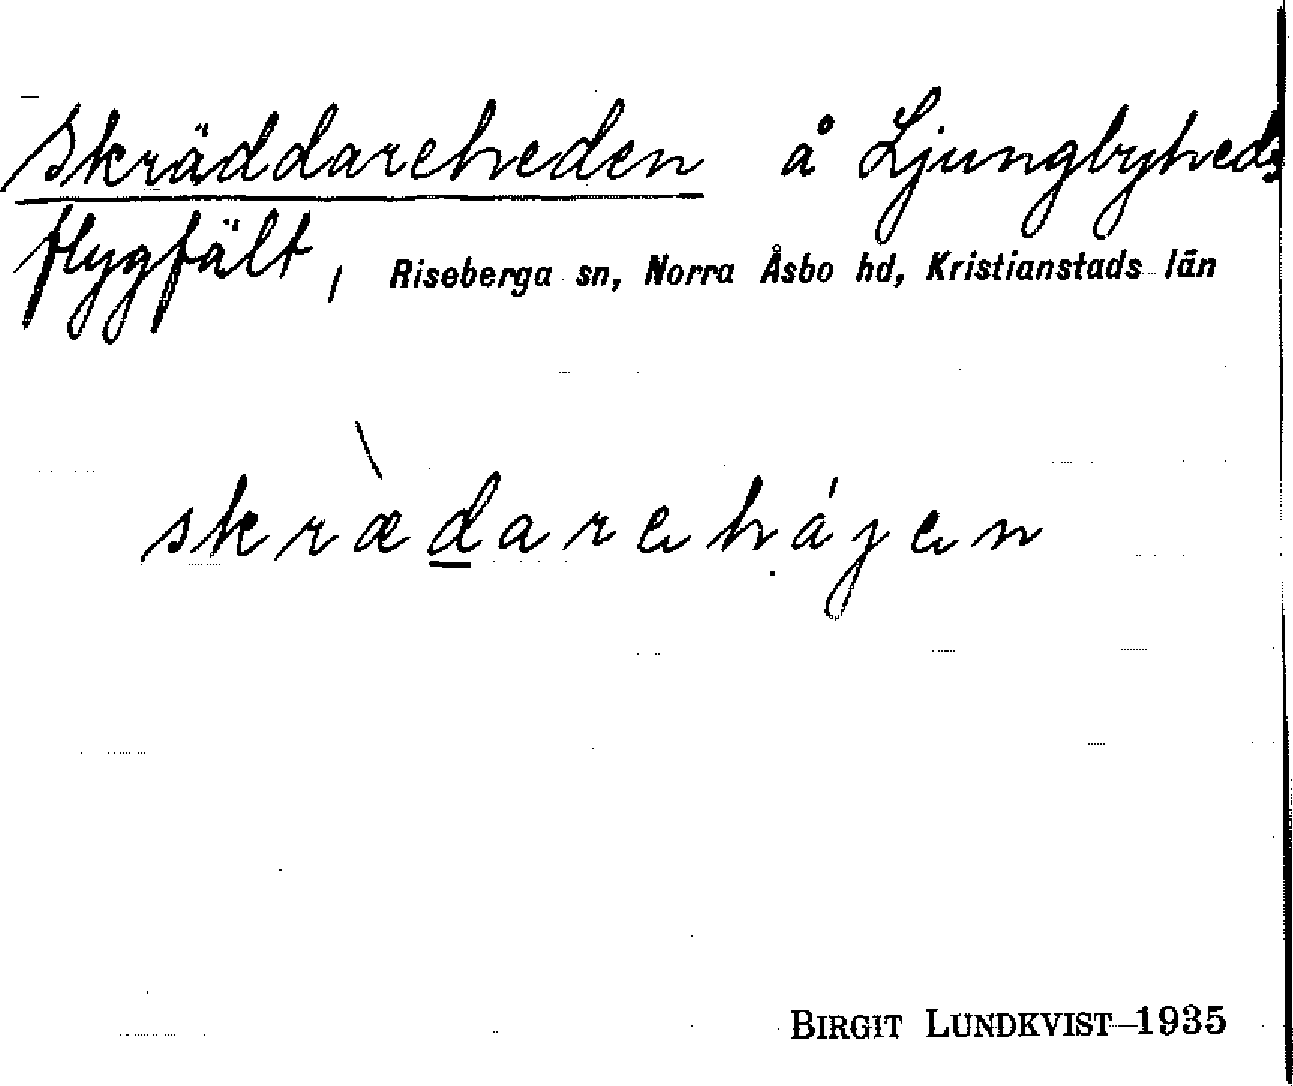 Skräddareheden å Ljungbyheds
flygfält, Riseberga sn, Norra Åsbo hd, Kristianstads län
skræ̀darehájen
BIRGIT LUNDKVIST 1935